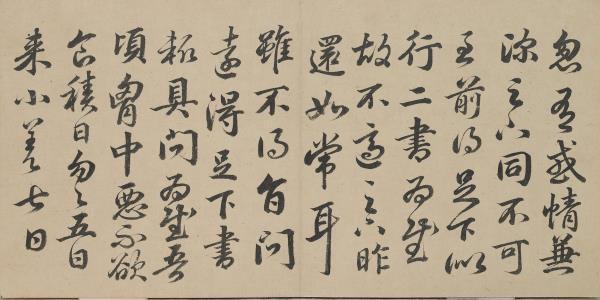 忽有感情兼
深之不同不可
至前得足下似
行二書為慰
故不適 昨
還如常耳
雖不得旨問
遠得足下書
具問為慰吾
頃胷中惡不欲
食積日勿々五日
来小差七日